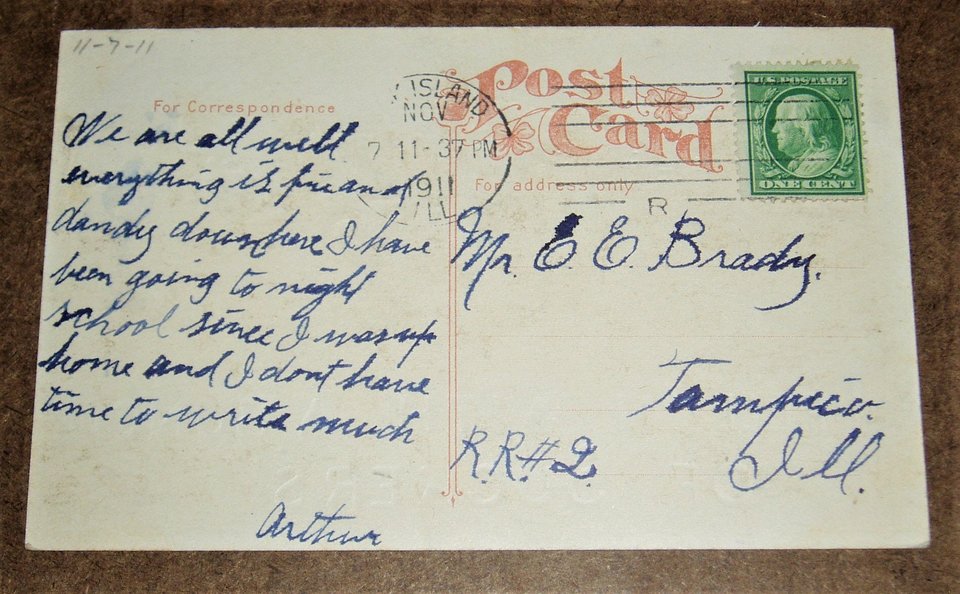 11-7-11
Post
Card
For Correspondence
ISLAND
NOV
7 11-37 PM
1911
ILL
R
For address only
U.S. POSTAGE
ONE CENT
We are all well
everything is fine and
dandy down here I have
been going to night
school since I was up
home and I dont have
time to write much
Arthur
Mr. E. E. Brady.
Tampico.
R.R.#2.
Ill.